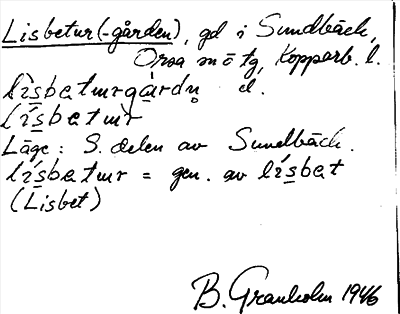 Lisbetur (-gården), gd i Sundbäck,
Orsa sn ö tg, Kopparb. l.
lìsbeturgàrdn̥ el.
lísbetur
Läge: S. delen av Sundbäck.
lísbetur = gen. av lísbet
(Lisbet)
B. Granholm 1946